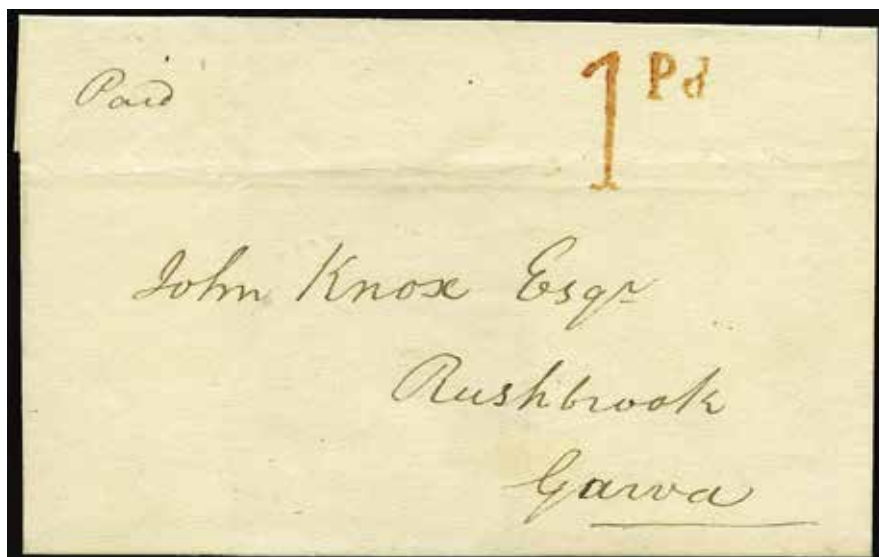 Paid
1 Pd
John Knox Esqr
Rushbrook
Garva